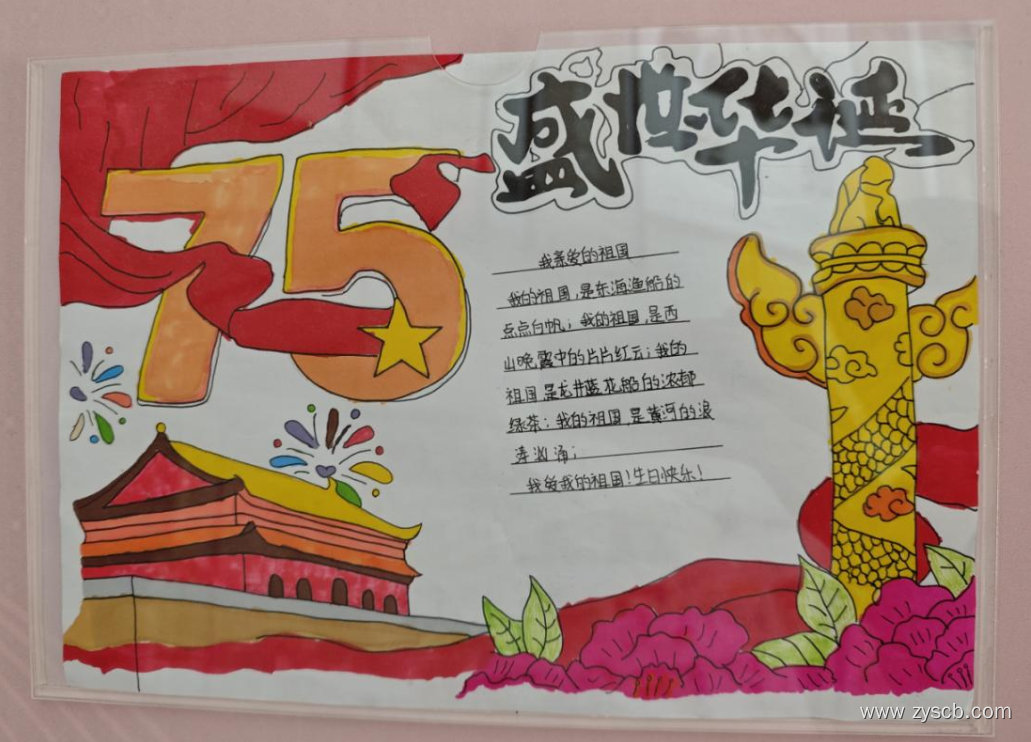 75
盛世华诞
我亲爱的祖国
我的祖国,是东海渔船的
点点白帆;我的祖国,是西
山晚霞中的片片红云;我的
祖国,是龙井蓝花船的浓郁
绿茶;我的祖国,是黄河的浪
涛汹涌;
我爱我的祖国!生日快乐!
www.zyscb.com